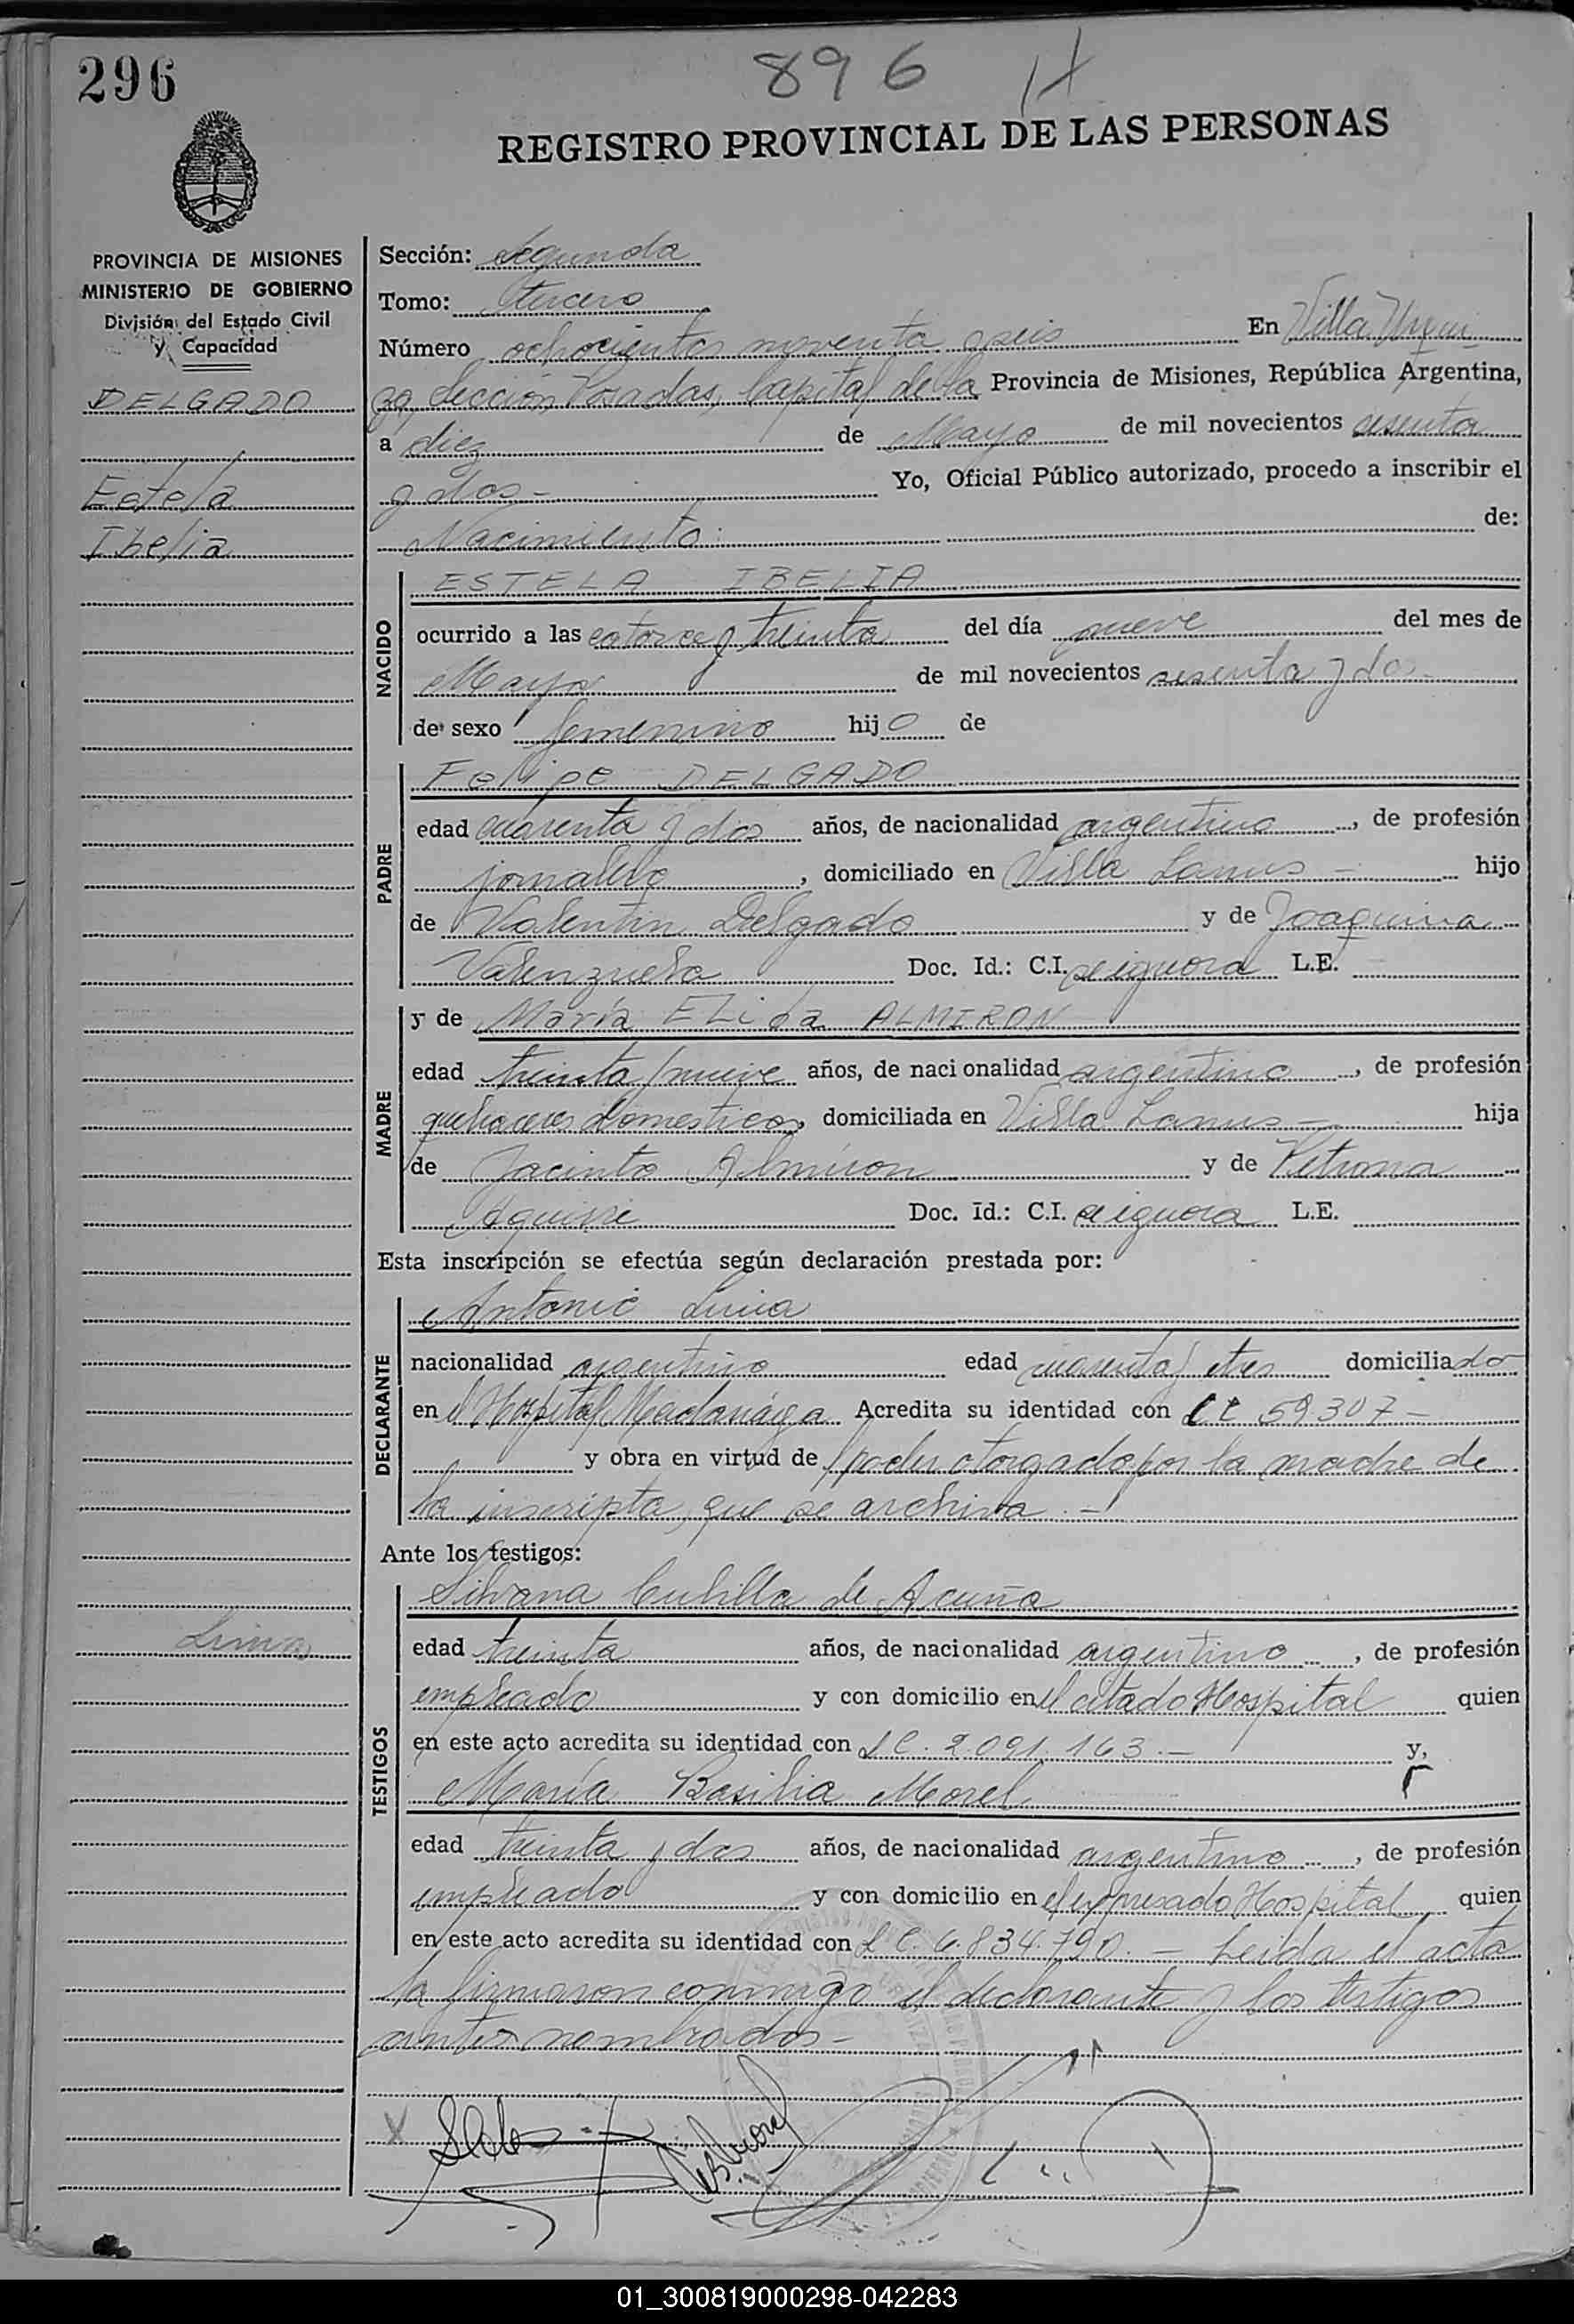 296
896
REGISTRO PROVINCIAL DE LAS PERSONAS
PROVINCIA DE MISIONES
MINISTERIO DE GOBIERNO
División del Estado Civil
y Capacidad
DELGADO
Estela
Ibelia
Lima
Sección: Segunda
Tomo: tercero
Número ochocientos noventa y seis En Villa Urqui
za, Sección Posadas, Capital de la Provincia de Misiones, República Argentina,
a diez de Mayo de mil novecientos sesenta
y dos - Yo, Oficial Público autorizado, procedo a inscribir el
Nacimiento: de:
NACIDO
ESTELA IBELIA
ocurrido a las catorce y treinta del día nueve del mes de
Mayo de mil novecientos sesenta y dos -
de sexo femenino hijo de
PADRE
Felipe DELGADO
edad cuarenta y dos años, de nacionalidad argentino, de profesión
jornalero, domiciliado en Villa Lanus - hijo
de Valentin Delgado y de Joaquina
Valenzuela Doc. Id.: C.I. se ignora L.E.
MADRE
y de María ELida ALMIRON
edad treinta y nueve años, de nacionalidad argentino, de profesión
quehaceres domesticos, domiciliada en Villa Lanus - hija
de Jacinto Almiron y de Petrona
Aguirre Doc. Id.: C.I. se ignora L.E.
Esta inscripción se efectúa según declaración prestada por:
DECLARANTE
Antonio Lima
nacionalidad argentino edad cuarenta y tres domiciliado
en el Hospital Madariaga Acredita su identidad con 59.307 -
y obra en virtud de poder otorgado por la madre de
la inscripta, que se archiva. -
Ante los testigos:
TESTIGOS
Silvana Cubilla de Acuña
edad treinta años, de nacionalidad argentino, de profesión
empleado y con domicilio en el citado Hospital quien
en este acto acredita su identidad con L C. 2.091.163. - y,
María Basilia Morel
edad treinta y dos años, de nacionalidad argentino, de profesión
empleado y con domicilio en el expresado Hospital quien
en este acto acredita su identidad con L C. 6.834.790. - Leida el acta
la firmaron conmigo el declarante y los testigos
antes nombrados -
01_300819000298-042283